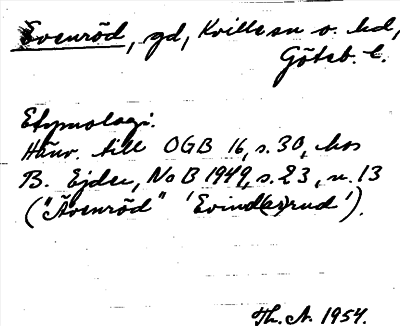 Evenröd, gd, Kville sn o. hd,
Göteb. l.
Etymologi.
Hänv. till OGB 16, s. 30, hos
B. Ejder, NoB 1949, s. 23, n. 13
("Ävenröd" 'Evind(a)rud').
Th. A. 1954.